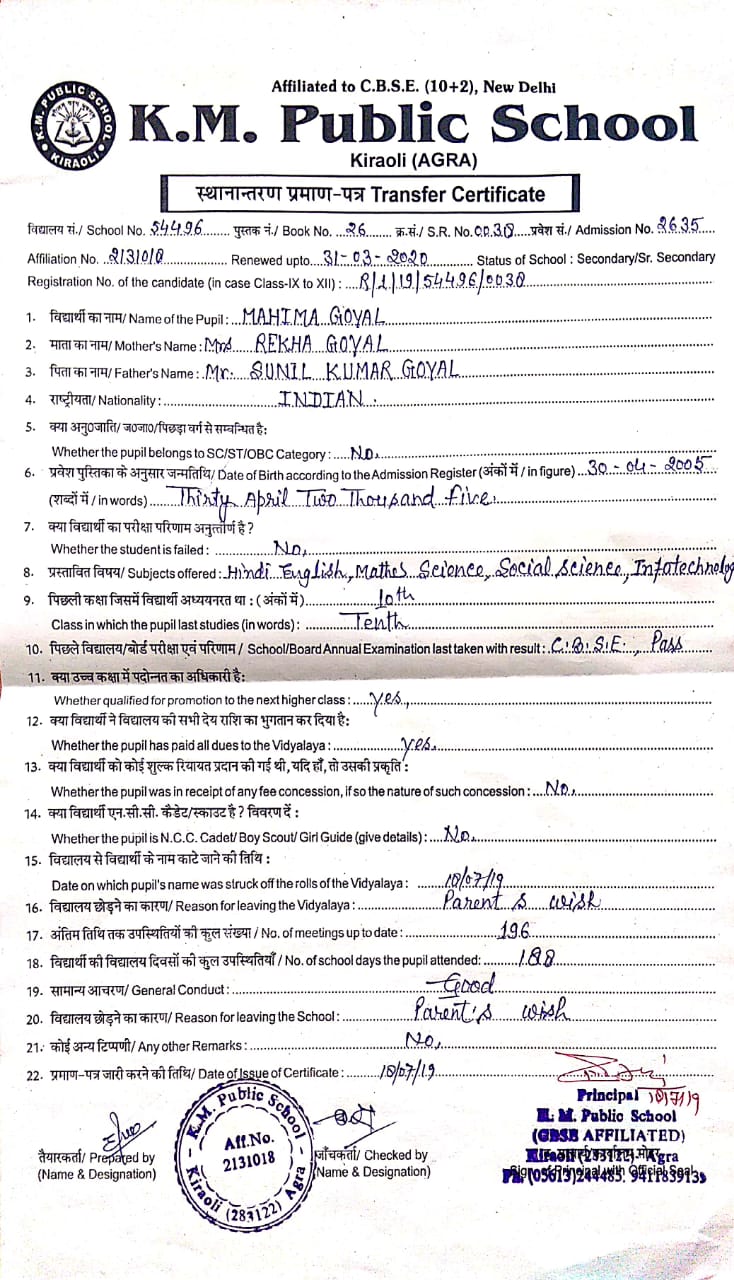 Affiliated to C.B.S.E. (10+2), New Delhi
K.M. PUBLIC SCHOOL
KIRAOLI
K.M. Public School
Kiraoli (AGRA)
स्थानान्तरण प्रमाण-पत्र Transfer Certificate
विद्यालय सं./ School No. 54496 पुस्तक नं./ Book No. 26 क्र.सं./ S.R. No. 0038 प्रवेश सं./ Admission No. 2635
Affiliation No. 2131018 Renewed upto 31-03-2020 Status of School : Secondary/Sr. Secondary
Registration No. of the candidate (in case Class-IX to XII) : R/1/19/54496/0038
1. विद्यार्थी का नाम/ Name of the Pupil : MAHIMA GOYAL
2. माता का नाम/ Mother's Name : Mrs REKHA GOYAL
3. पिता का नाम/ Father's Name : Mr. SUNIL KUMAR GOYAL
4. राष्ट्रीयता/ Nationality : INDIAN.
5. क्या अनु०जाति/ ज०जा०/पिछड़ा वर्ग से सम्बन्धित है:
Whether the pupil belongs to SC/ST/OBC Category : No.
6. प्रवेश पुस्तिका के अनुसार जन्मतिथि/ Date of Birth according to the Admission Register (अंकों में / in figure) 30-04-2005
(शब्दों में / in words) Thirty April Two Thousand Five.
7. क्या विद्यार्थी का परीक्षा परिणाम अनुत्तीर्ण है ?
Whether the student is failed : No.
8. प्रस्तावित विषय/ Subjects offered : Hindi English, Maths Science, Social Science, Infotechnology
9. पिछली कक्षा जिसमें विद्यार्थी अध्ययनरत था : (अंकों में) 10th
Class in which the pupil last studies (in words) : Tenth
10. पिछले विद्यालय/बोर्ड परीक्षा एवं परिणाम / School/Board Annual Examination last taken with result : C.B.S.E., Pass
11. क्या उच्च कक्षा में पदोन्नत का अधिकारी है:
Whether qualified for promotion to the next higher class : yes,
12. क्या विद्यार्थी ने विद्यालय की सभी देय राशि का भुगतान कर दिया है:
Whether the pupil has paid all dues to the Vidyalaya : yes.
13. क्या विद्यार्थी को कोई शुल्क रियायत प्रदान की गई थी, यदि हाँ, तो उसकी प्रकृति :
Whether the pupil was in receipt of any fee concession, if so the nature of such concession : No.
14. क्या विद्यार्थी एन.सी.सी. कैडेट/स्काउट है ? विवरण दें :
Whether the pupil is N.C.C. Cadet/ Boy Scout/ Girl Guide (give details) : No.
15. विद्यालय से विद्यार्थी के नाम काटे जाने की तिथि :
Date on which pupil's name was struck off the rolls of the Vidyalaya : 18/07/19
16. विद्यालय छोड़ने का कारण/ Reason for leaving the Vidyalaya : Parent's wish
17. अंतिम तिथि तक उपस्थितियों की कुल संख्या / No. of meetings up to date : 196
18. विद्यार्थी की विद्यालय दिवसों की कुल उपस्थितियाँ / No. of school days the pupil attended: 188
19. सामान्य आचरण/ General Conduct : Good
20. विद्यालय छोड़ने का कारण/ Reason for leaving the School : Parent's wish
21. कोई अन्य टिप्पणी/ Any other Remarks : No,
22. प्रमाण-पत्र जारी करने की तिथि/ Date of Issue of Certificate : 18/07/19
Principal 18/7/19
K. M. Public School
(CBSE AFFILIATED)
Kiraoli (283122) Agra
Ph. (05613) 244485. 9411839139
Sign of Principal with Official Seal
K.M. Public School
Aff.No.
2131018
Kiraoli (283122) Agra
तैयारकर्ता/ Prepared by
(Name & Designation)
जाँचकर्ता/ Checked by
(Name & Designation)